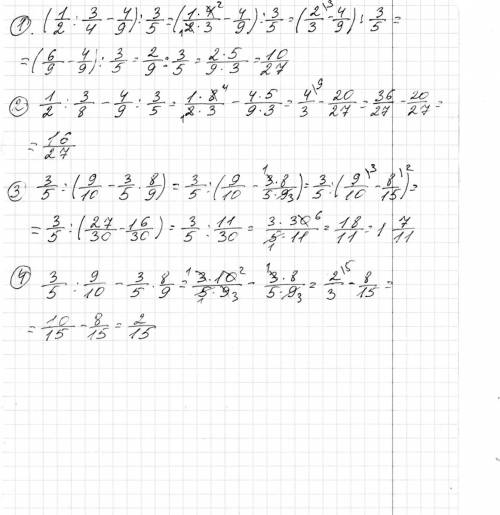 1. (1/2 : 3/4 - 4/9) : 3/5 = (1·4²/2·3 - 4/9) : 3/5 = (2/3\³ - 4/9) : 3/5 =
= (6/9 - 4/9) : 3/5 = 2/9 : 3/5 = 2·5/9·3 = 10/27
2 1/2 : 3/8 - 4/9 : 3/5 = 1·8⁴/₁2·3 - 4·5/9·3 = 4/3\⁹ - 20/27 = 36/27 - 20/27 =
= 16/27
3 3/5 : (9/10 - 3/5 · 8/9) = 3/5 : (9/10 - ¹3·8/5·9₃) = 3/5 : (9/10\³ - 8/15\²) =
= 3/5 : (27/30 - 16/30) = 3/5 : 11/30 = 3·30⁶/₁5·11 = 18/11 = 1 7/11
4 3/5 : 9/10 - 3/5 · 8/9 = ¹3·10²/₁5·9₃ - ¹3·8/5·9₃ = 2/3\⁵ - 8/15 =
= 10/15 - 8/15 = 2/15